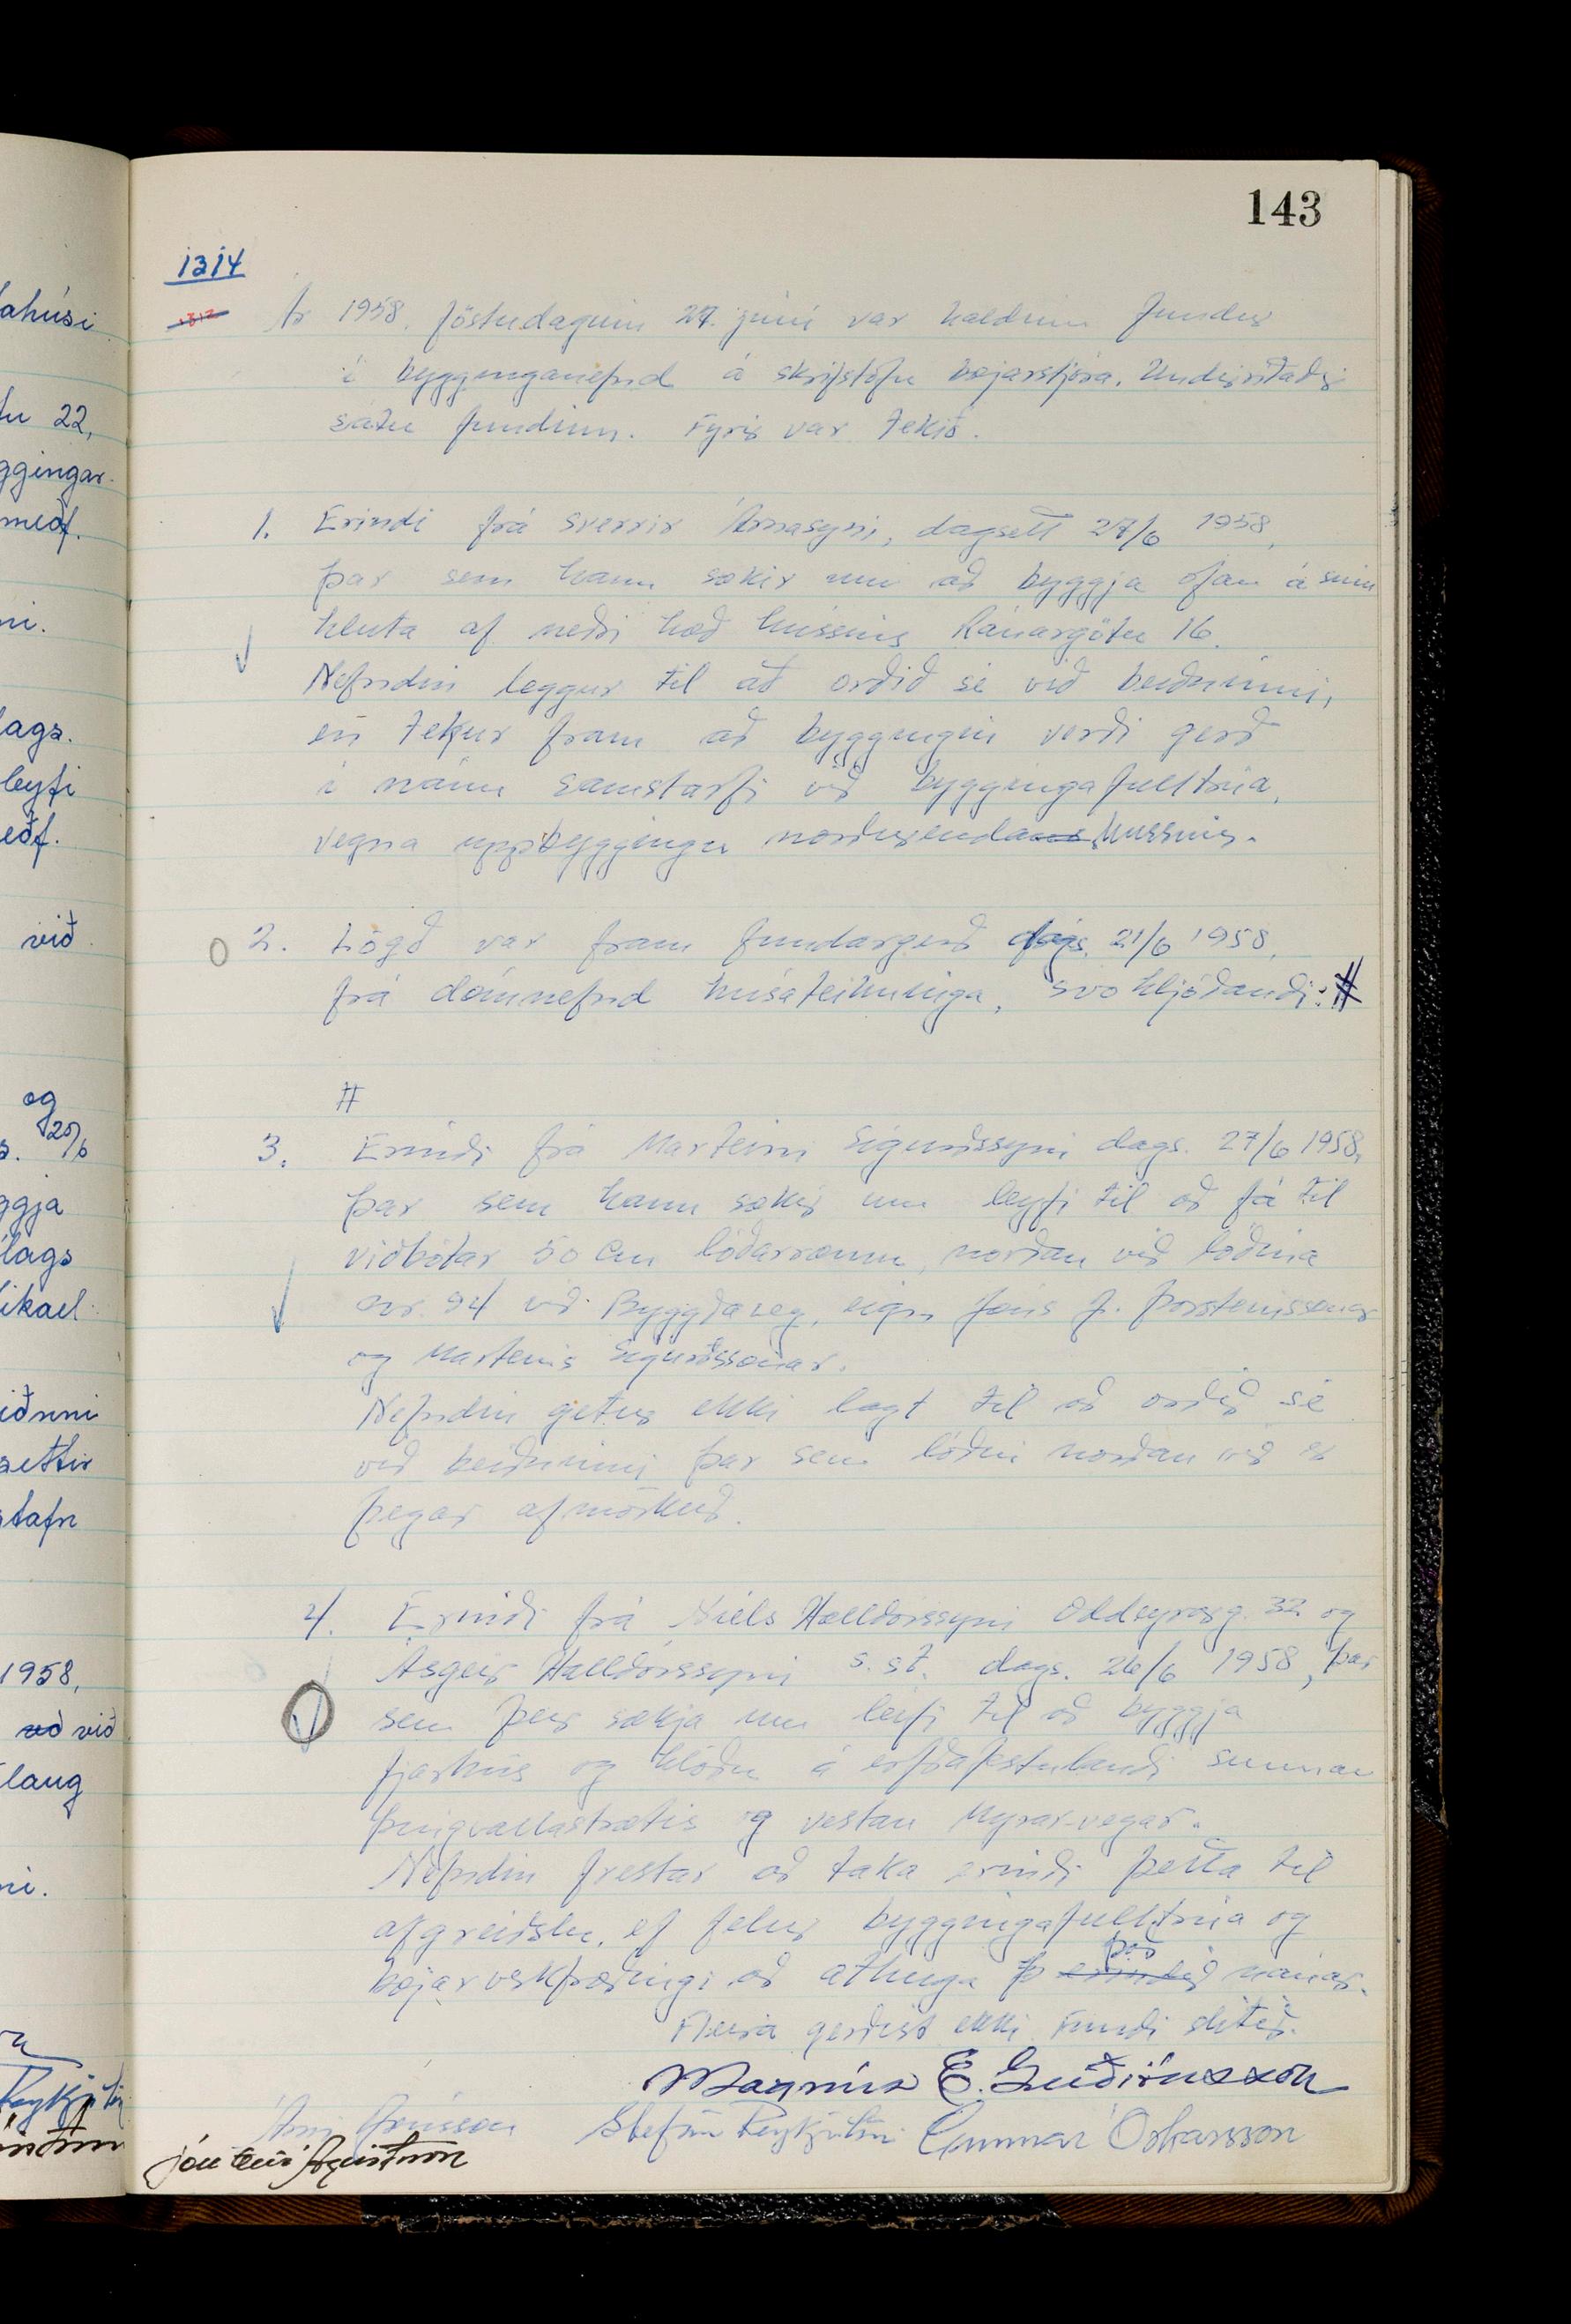 143
1314
1312
Ár 1958. föstudaginn 27. júní var haldinn fundur
í bygginganefnd á skrifstofu bæjarstjóra. Undirritaðir
sátu fundinn. Fyrir var tekið.
1. Erindi frá Sverrir Árnasyni, dagsett 27/6 1958,
þar sem hann sækir um að byggja ofan á sinn
hluta af neðri hæð hússins Ránargötu 16.
Nefndin leggur til að orðið sé við beiðninni,
en tekur fram að byggingin verði gerð
í nánu samstarfi við byggingafulltrúa,
vegna uppbyggingu norðurendans hússins.
2. Lögð var fram fundargerð dags. 21/6 1958,
frá dómnefnd húsateikninga, svohljóðandi: #
#
3. Erindi frá Marteini Sigurðssyni dags. 27/6 1958,
þar sem hann sækir um leyfi til að fá til
viðbótar 50 cm lóðarræmu, norðan við lóðina
nr. 94 við Byggðaveg, eign Jóns J. Þorsteinssonar
og Marteins Sigurðssonar.
Nefndin getur ekki lagt til að orðið sé
við beiðninni þar sem lóðin norðan við er
þegar afmörkuð.
4. Erindi frá Níels Halldórssyni Oddeyrarg. 32 og
Ásgeir Halldórssyni s.st. dags. 26/6 1958, þar
sem þeir sækja um leyfi til að byggja
fjárhús og hlöðu á erfðafestulandi sunnan
Þingvallastrætis og vestan Mýrar-vegar.
Nefndin frestar að taka erindi þetta til
afgreiðslu, ef felur byggingafulltrúa og
það
bæjarverkfræðingi að athuga þ erindið nánar.
Fleira gerðist ekki. Fundi slitið.
Magnús E. Guðjónsson
Árni Jónsson Stefán Reykjalín Gunnar Óskarsson
Jón Geir Ágústsson